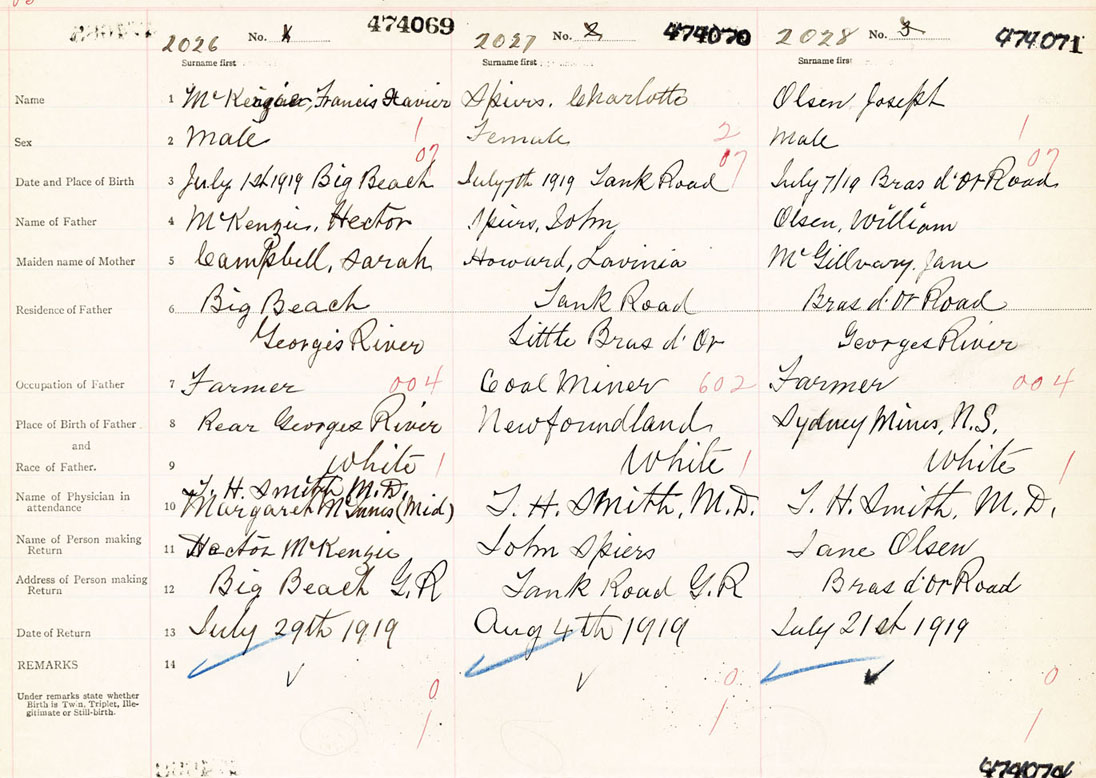 2026 No. 1 474069 2027 No. 2 474070 2028 No. 3 474071
Surname first Surname first Surname first
Name 1 McKenzie, Francis Xavier Spiers, Charlotte Olsen, Joseph
Sex 2 Male 1 Female 2 Male 1
07 07 07
Date and Place of Birth 3 July 1st 1919 Big Beach July 7th 1919 Tank Road July 7/19 Bras d'Or Road
Name of Father 4 McKenzie, Hector Spiers, John Olsen, William
Maiden name of Mother 5 Campbell, Sarah Howard, Lavinia McGillvary, Jane
Residence of Father 6 Big Beach Tank Road Bras d'Or Road
Georges River Little Bras d'Or Georges River
Occupation of Father 7 Farmer 004 Coal Miner 602 Farmer 004
Place of Birth of Father 8 Rear Georges River Newfoundland Sydney Mines, N.S.
and
Race of Father. 9 White 1 White 1 White 1
T. H. Smith, M.D.
Name of Physician in attendance 10 Margaret McInnis (Mid) T. H. Smith, M.D. T. H. Smith, M.D.
Name of Person making Return 11 Hector McKenzie John Spiers Jane Olsen
Address of Person making Return 12 Big Beach G.R Tank Road G.R Bras d'Or Road
Date of Return 13 July 29th 1919 Aug 4th 1919 July 21st 1919
REMARKS 14
0 0 0
Under remarks state whether
Birth is Twin, Triplet, Ille-
gitimate or Still-birth.
1 1 1